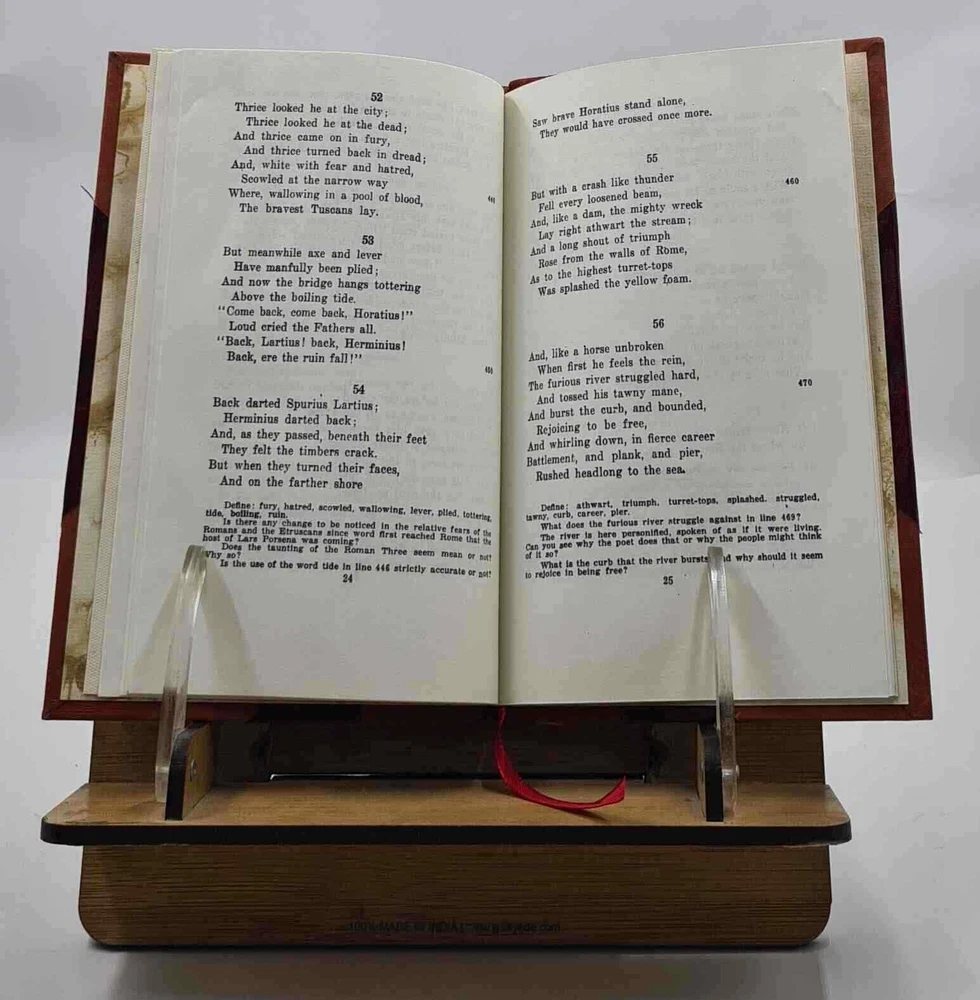 52
Thrice looked he at the city;
Thrice looked he at the dead;
And thrice came on in fury,
And thrice turned back in dread;
And, white with fear and hatred,
Scowled at the narrow way
Where, wallowing in a pool of blood,
The bravest Tuscans lay.
53
But meanwhile axe and lever
Have manfully been plied;
And now the bridge hangs tottering
Above the boiling tide.
"Come back, come back, Horatius!"
Loud cried the Fathers all.
"Back, Lartius! back, Herminius!
Back, ere the ruin fall!"
54
Back darted Spurius Lartius;
Herminius darted back;
And, as they passed, beneath their feet
They felt the timbers crack.
But when they turned their faces,
And on the farther shore
Define: fury, hatred, scowled, wallowing, lever, plied, tottering,
tide, boiling, ruin.
Is there any change to be noticed in the relative fears of the
Romans and the Etruscans since word first reached Rome that the
host of Lars Porsena was coming?
Does the taunting of the Roman Three seem mean or not?
Why so?
Is the use of the word tide in line 446 strictly accurate or not?
24
Saw brave Horatius stand alone,
They would have crossed once more.
55
But with a crash like thunder 460
Fell every loosened beam,
And, like a dam, the mighty wreck
Lay right athwart the stream;
And a long shout of triumph
Rose from the walls of Rome,
As to the highest turret-tops
Was splashed the yellow foam.
56
And, like a horse unbroken
When first he feels the rein,
The furious river struggled hard, 470
And tossed his tawny mane,
And burst the curb, and bounded,
Rejoicing to be free,
And whirling down, in fierce career
Battlement, and plank, and pier,
Rushed headlong to the sea.
Define: athwart, triumph, turret-tops, splashed. struggled,
tawny, curb, career, pier.
What does the furious river struggle against in line 469?
The river is here personified, spoken of as if it were living.
Can you see why the poet does that or why the people might think
of it so?
What is the curb that the river bursts and why should it seem
to rejoice in being free?
25